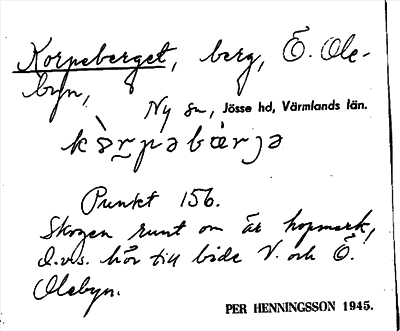 Korpeberget, berg, Ö. Ole-
byn,
Ny sn, Jösse hd, Värmlands län.
kòr̰pəbær̀jə
Punkt 156.
Skogen runt om är hopmark,
d.v.s. hör till både V. och Ö.
Olebyn.
PER HENNINGSSON 1945.